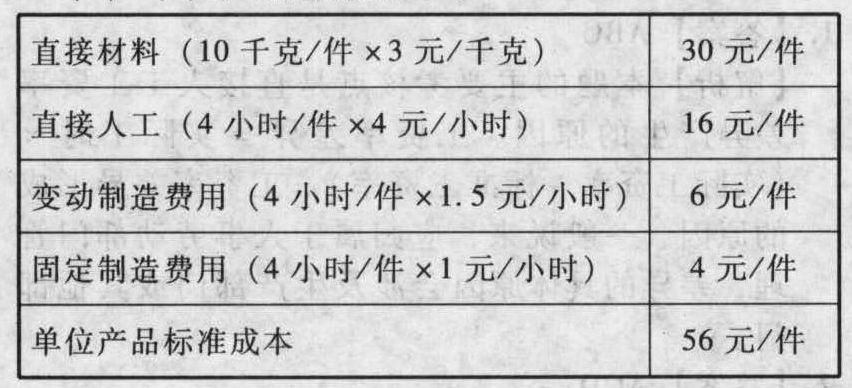 直接材料（10 千克/件 ×3 元/千克） 30 元/件
直接人工（4 小时/件 ×4 元/小时） 16 元/件
变动制造费用（4 小时/件 ×1.5 元/小时） 6 元/件
固定制造费用（4 小时/件 ×1 元/小时） 4 元/件
单位产品标准成本 56 元/件